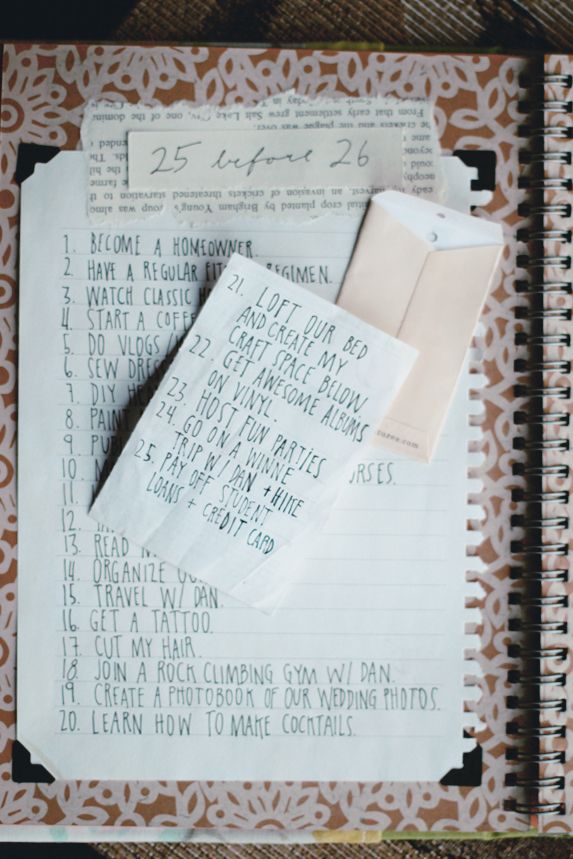 25 before 26
1. BECOME A HOMEOWNER.
2. HAVE A REGULAR REGIMEN.
3. WATCH CLASSIC
4. START A
5. DO VLOGS
6. SEW
7. DIY
8.
9.
10. RSES.
11.
12.
13. READ
14. ORGANIZE
15. TRAVEL W/ DAN.
16. GET A TATTOO.
17. CUT MY HAIR.
18. JOIN A ROCK CLIMBING GYM W/ DAN.
19. CREATE A PHOTOBOOK OF OUR WEDDING PHOTOS.
20. LEARN HOW TO MAKE COCKTAILS.
21. LOFT OUR BED
AND CREATE MY
CRAFT SPACE BELOW
22. GET AWESOME ALBUMS
ON VINYL.
23. HOST FUN PARTIES
24. GO ON A WINNE
TRIP W/ DAN + HIKE
25. PAY OFF STUDENT
LOANS + CREDIT CARD
From that early settlement grew Salt Lake City, one of the
the crickets and the plague was over.
harvest, an invasion of crickets threatened starvation to
crop planted by Brigham Young's group was
.com